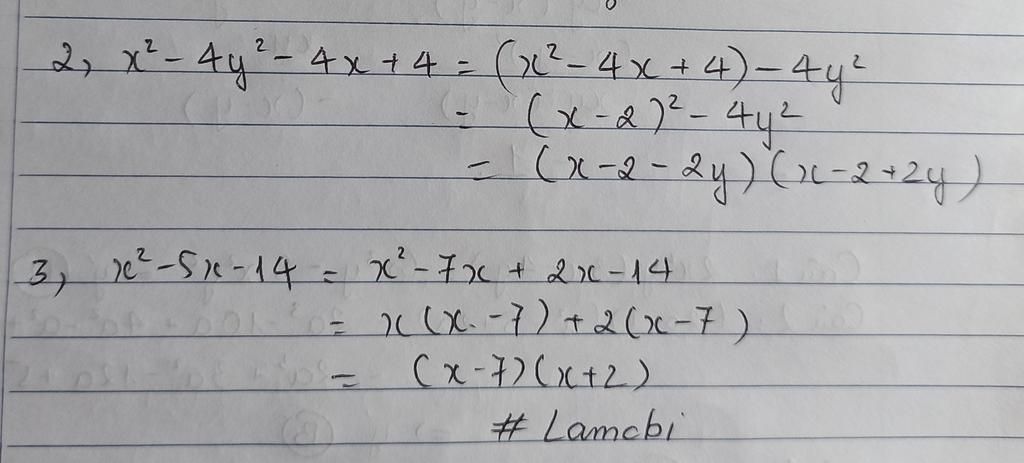 2, x² - 4y² - 4x + 4 = (x² - 4x + 4) - 4y²
= (x - 2)² - 4y²
= (x - 2 - 2y) (x - 2 + 2y)
3, x² - 5x - 14 = x² - 7x + 2x - 14
= x (x - 7) + 2 (x - 7)
= (x - 7) (x + 2)
# Lamcbi